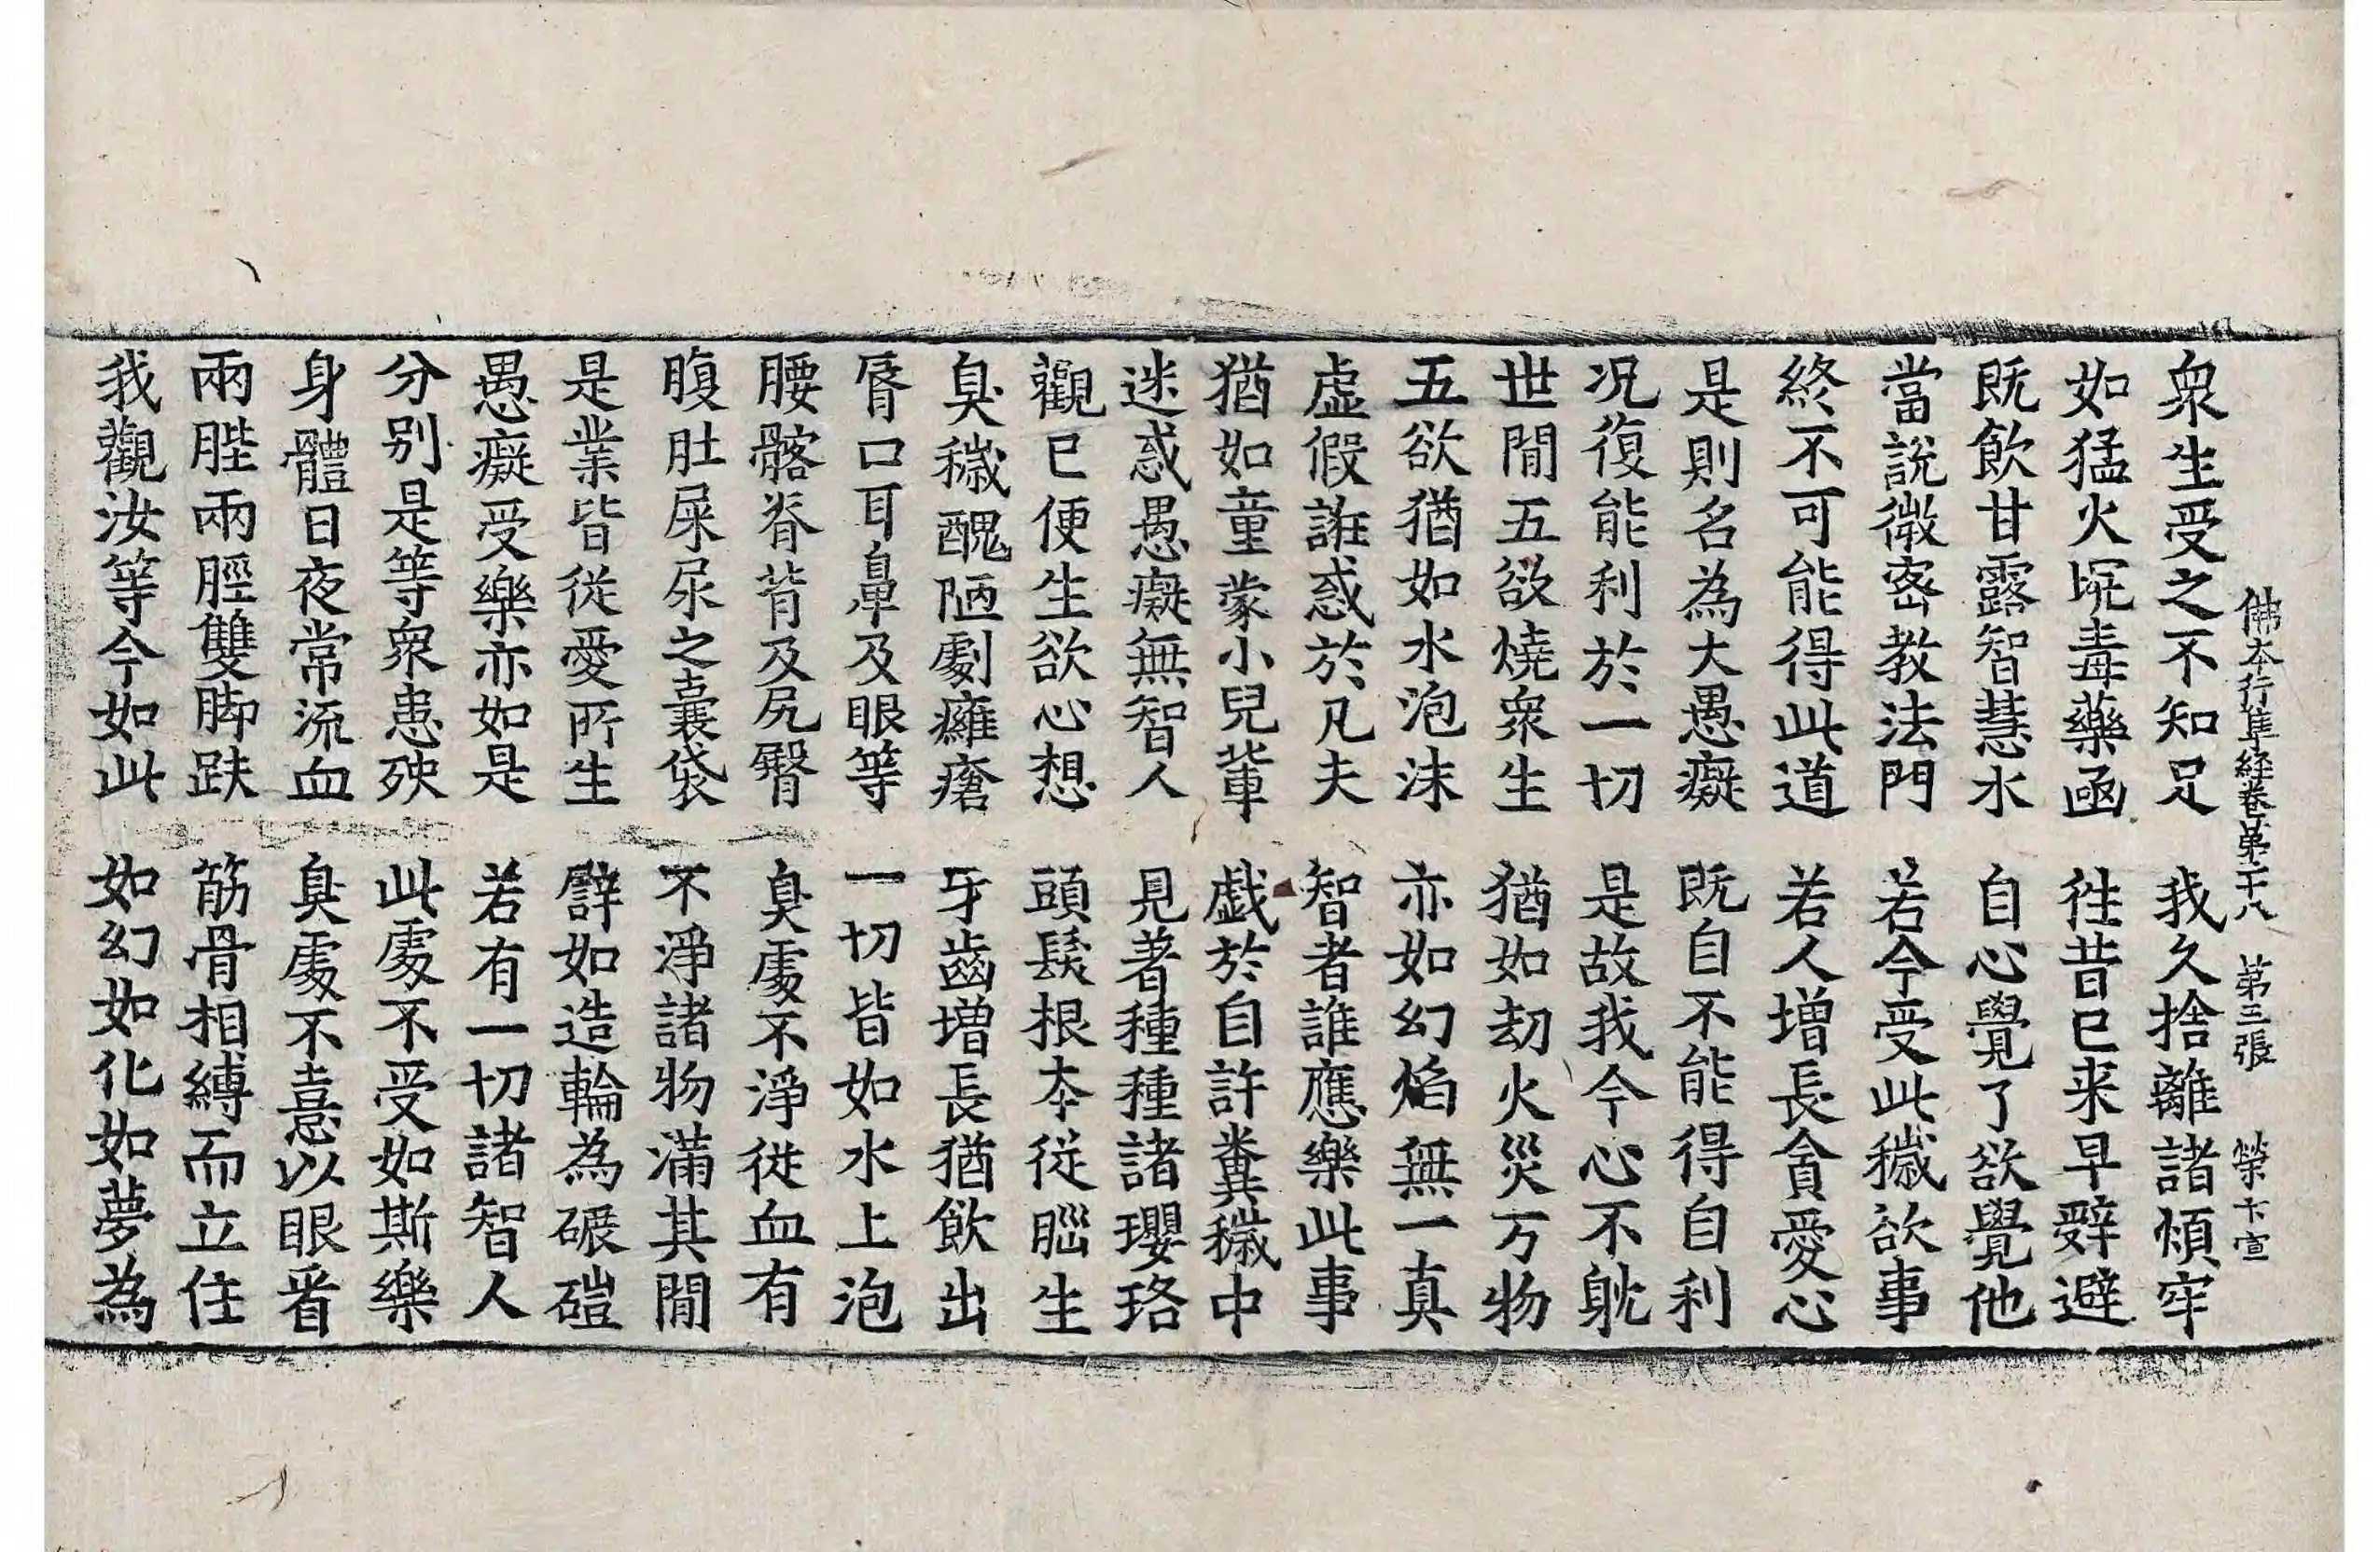 佛本行集経卷第二十八　第三張　榮　卞宣
衆生受之不知足　我久捨離諸煩牢
如猛火坑毒藥凾　徃昔巳来早辤避
既飲甘露智慧水　自心覺了欲覺他
當說微宻教法門　若今受此穢欲事
終不可能得此道　若人增長貪愛心
是則名為大愚癡　既自不能得自利
况復能利於一切　是故我今心不躭
世間五欲燒衆生　猶如劫火災万物
五欲猶如水泡沫　亦如幻焰無一真
虛假誑惑於凡夫　智者誰應樂此事
猶如童蒙小兒軰　戱於自許糞穢中
迷惑愚癡無智人　見著種種諸瓔珞
觀巳便生欲心想　頭髮根本從腦生
臭穢醜陋劇癰瘡　牙齒増長猶飲出
脣口耳鼻及眼等　一切皆如水上泡
腰髂脊背及尻臀　臭處不淨從血有
腹肚屎尿之囊袋　不淨諸物滿其間
是業皆從愛所生　譬如造輪為碾磑
愚癡受樂亦如是　若有一切諸智人
分别是等衆患殃　此處不受如斯樂
身體日夜常流血　臭處不憙以眼看
兩䏶兩脛雙脚趺　筋骨相縛而立住
我觀汝等今如此　如幻如化如夢為